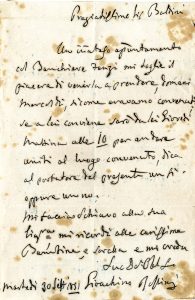 Pregiatissimo Sig. Bottini
Un cintato appuntamento
col Banchiere Tanzi mi toglie il
piacere di venirla a prendere domani
Mercoldì, siccome avevamo convenuto
se a lei conviene sarò da lei Giovedì
Mattina alle 10 per andare
uniti al luogo convenuto, dica
al portatore del presente un sì
oppure un no.
Mi faccia schiavo alla sua
Signora mi ricordi alle carissime
e mi creda
Suo
Martedì 30 Gioachino Rossini